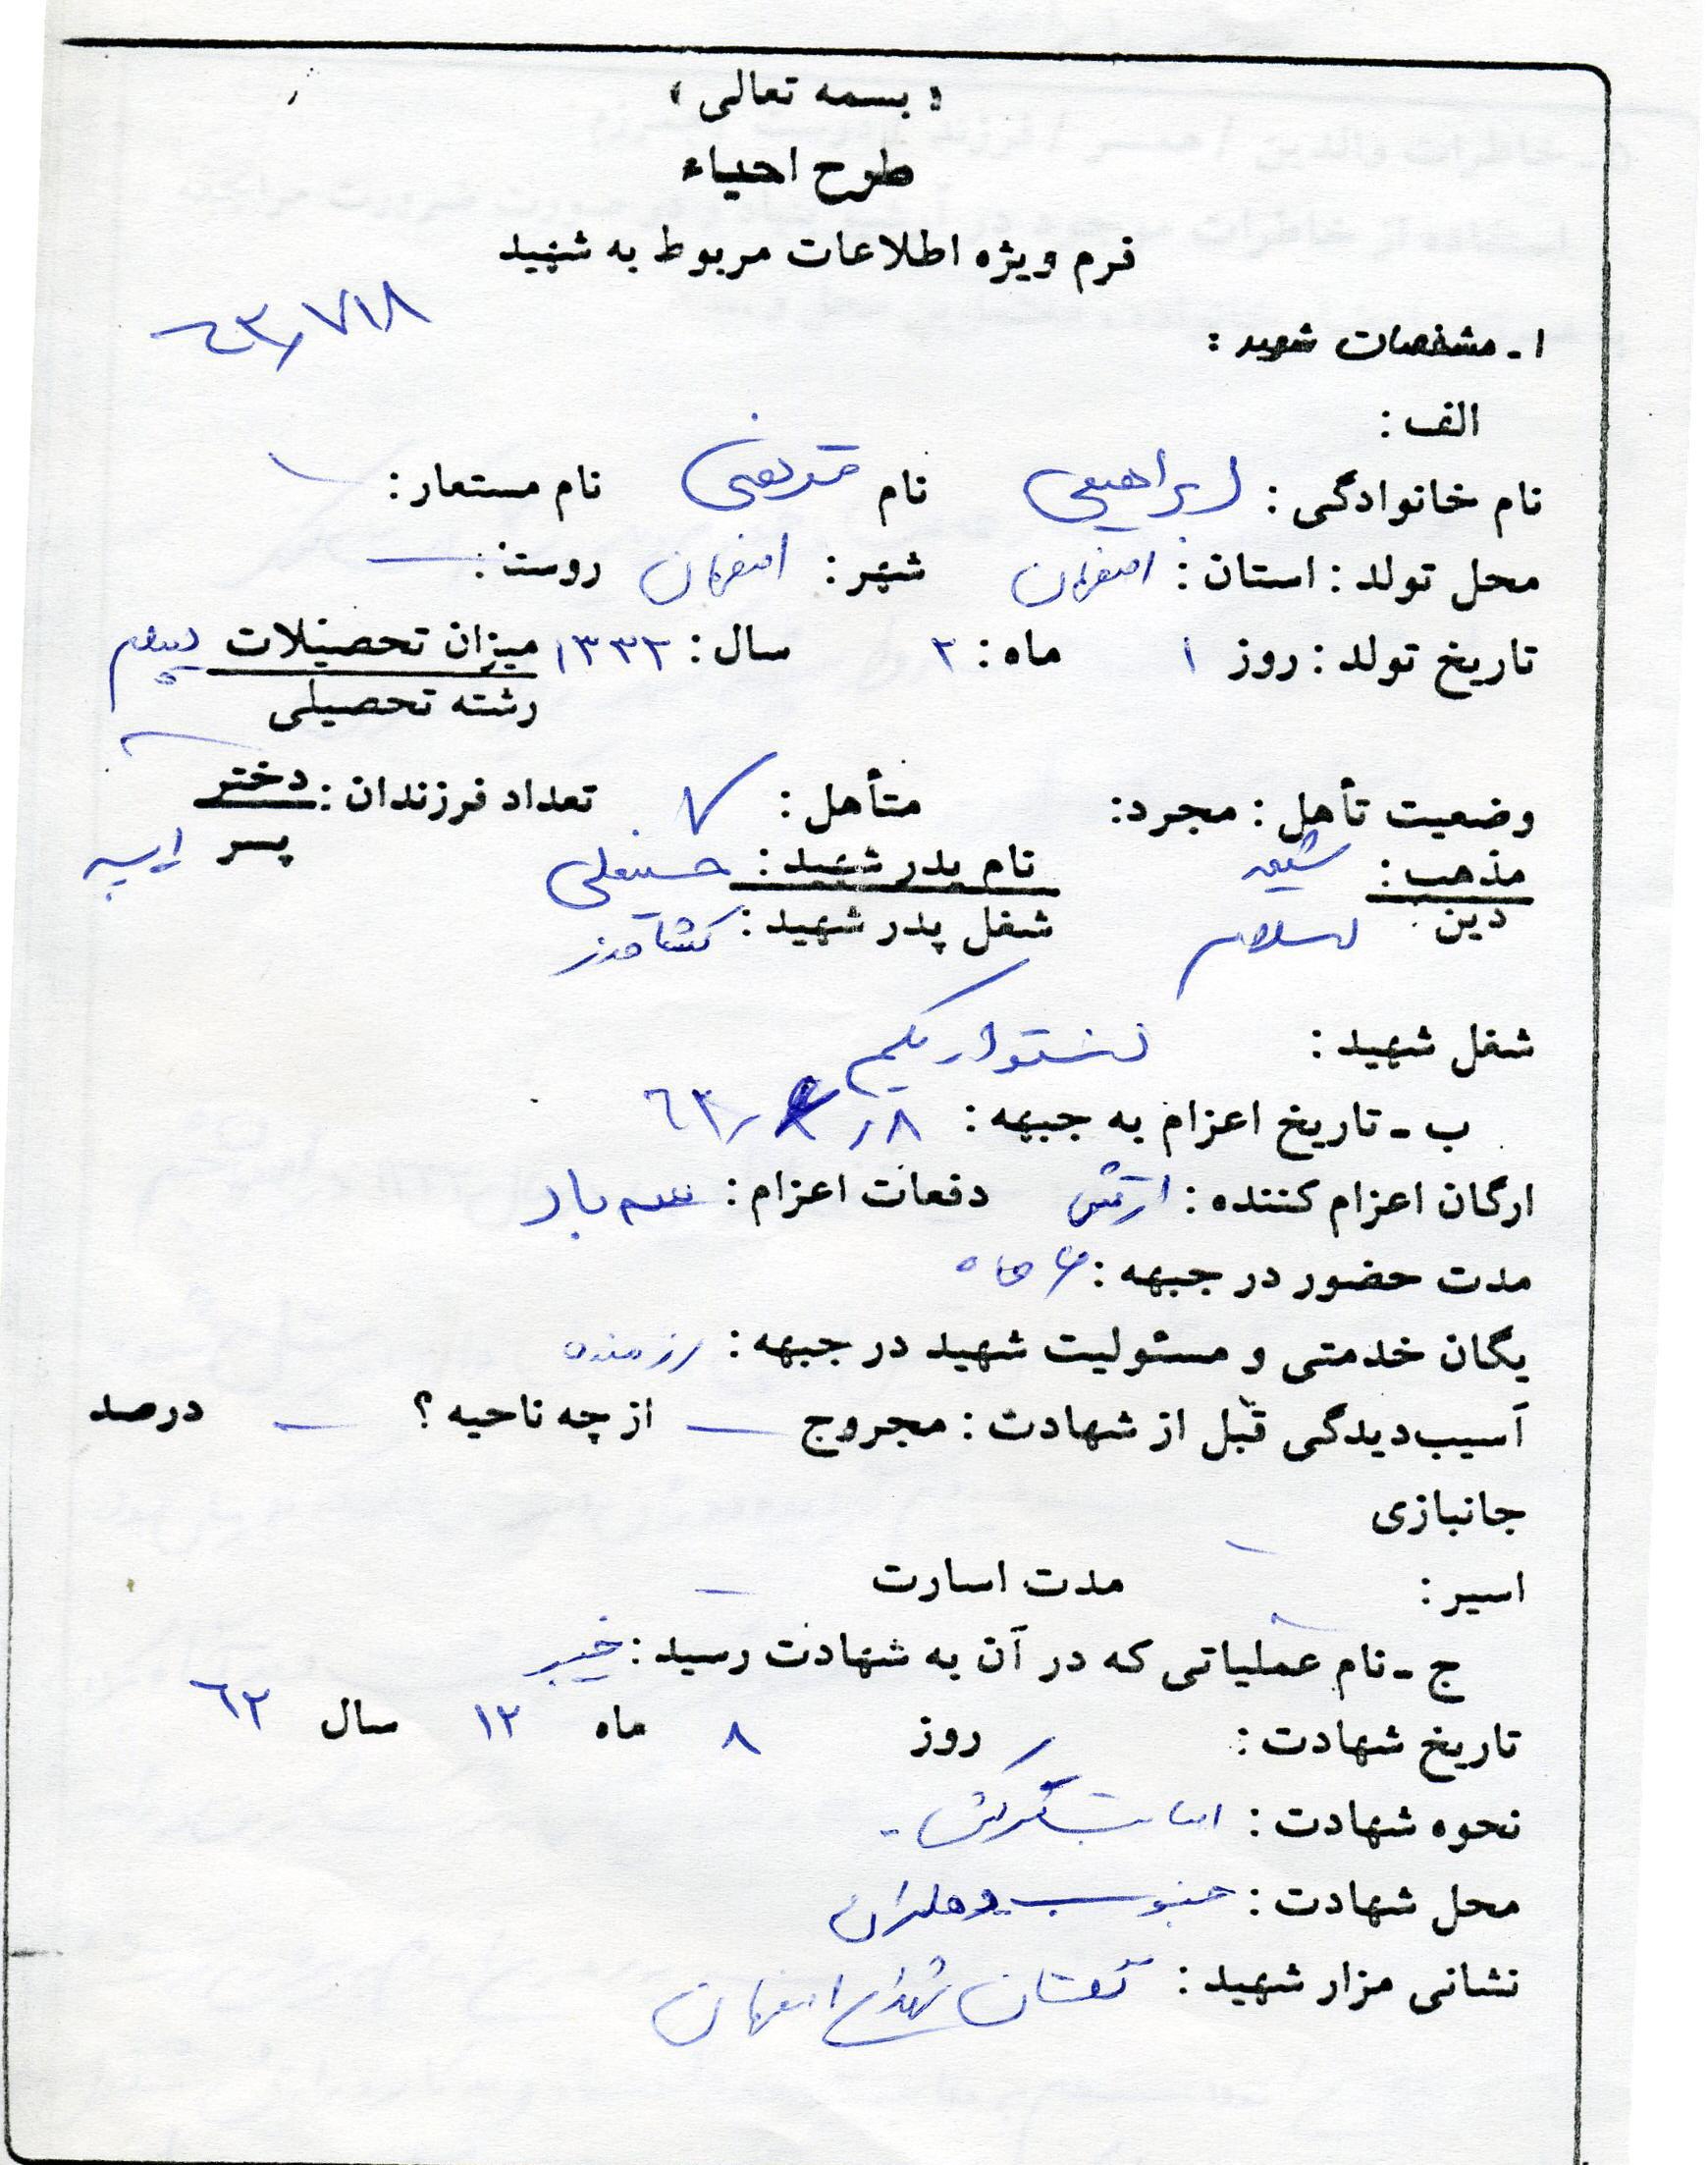 « بسمه تعالی »
طرح احیاء
فرم ویژه اطلاعات مربوط به شهید
۱ـ مشخصات شهید :
الف :
نام خانوادگی : ابراهیمی نام مرتضی نام مستعار :
محل تولد : استان : اصفهان شهر : اصفهان روستا :
تاریخ تولد : روز ۱ ماه : ۲ سال : ۱۳۳۲ میزان تحصیلات دیپلم
رشته تحصیلی
وضعیت تأهل : مجرد : متأهل : ✓ تعداد فرزندان : دختر
پسر
مذهب : شیعه نام پدر شهید : حسینعلی
دین : اسلام شغل پدر شهید : کشاورز
شغل شهید : استوار یکم
ب ـ تاریخ اعزام به جبهه :
ارگان اعزام کننده : ارتش دفعات اعزام : سه بار
مدت حضور در جبهه : ۶ ماه
یگان خدمتی و مسئولیت شهید در جبهه : رزمنده
آسیب‌دیدگی قبل از شهادت : مجروح — از چه ناحیه ؟ — درصد
جانبازی
اسیر : مدت اسارت —
ج ـ نام عملیاتی که در آن به شهادت رسید : خیبر
تاریخ شهادت : روز ۸ ماه ۱۲ سال ۶۲
نحوه شهادت : اصابت ترکش
محل شهادت : جنوب دهلران
نشانی مزار شهید : گلستان شهدای اصفهان